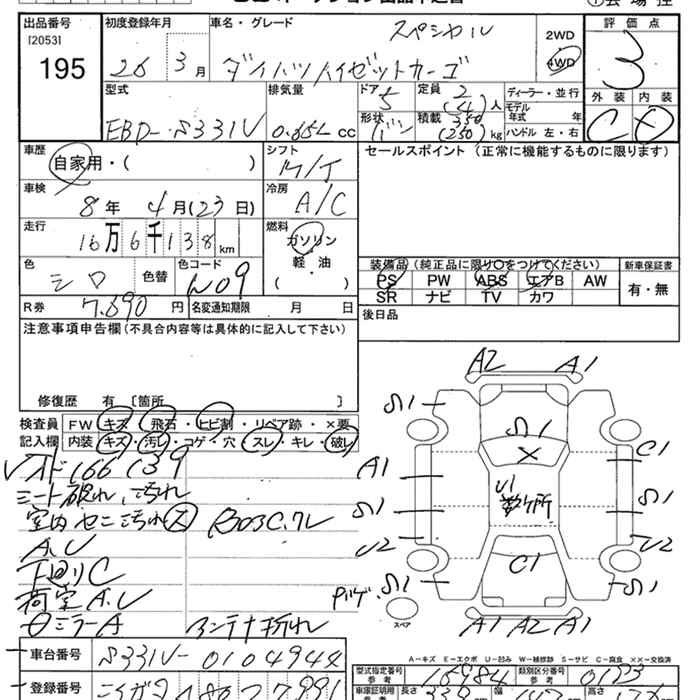 出品番号
[2053]
195
初度登録年月
26年 3月
車名・グレード
スペシャル
ダイハツハイゼットカーゴ
2WD
4WD
評価点
3
外装 内装
C D
型式
EBD-S331V
排気量
0.65L cc
ドア
5
形状
バン
定員
2
(4)人
積載 350
(250)kg
ディーラー・並行
モデル
年式 年
ハンドル 左・右
車歴
自家用・( )
シフト
M/T
セールスポイント (正常に機能するものに限ります)
車検
8年 4月(23日)
冷房
A/C
走行
16万6千138km
燃料
ガソリン
・
軽・油
( )
色
シロ
色替
色コード
W09
装備品 (純正品に限り○をつけてください)
PS PW ABS エアB AW
SR ナビ TV カワ
新車保証書
有・無
R券 7,690円
名変通知期限 月 日
後日品
注意事項申告欄(不具合内容等は具体的に記入して下さい)
修復歴 有 [箇所 ]
検査員
記入欄
FW キズ・飛石・ヒビ割・リペア跡・×要
内装 キズ・汚レ・コゲ・穴・スレ・キレ・破レ
シート破れ、汚れ
A.U
下回りC
荷室A.U
ミラーA アンテナ折れ
A2 A1
S1 S1
C1
A1
S1 S1
U1
U2 U2
C1
S1 S1
スペア
A1 A2 A1
A-キズ E-エクボ U-凹み W-補修跡 S-サビ C-腐食 XX-交換済
車台番号 S331V-0104944
登録番号
型式指定番号
参考 16984
類別区分番号
参考
車庫証明用
長さ
幅
高さ